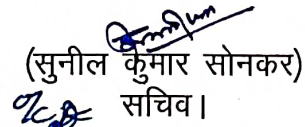 (सुनील कुमार सोनकर)
सचिव।